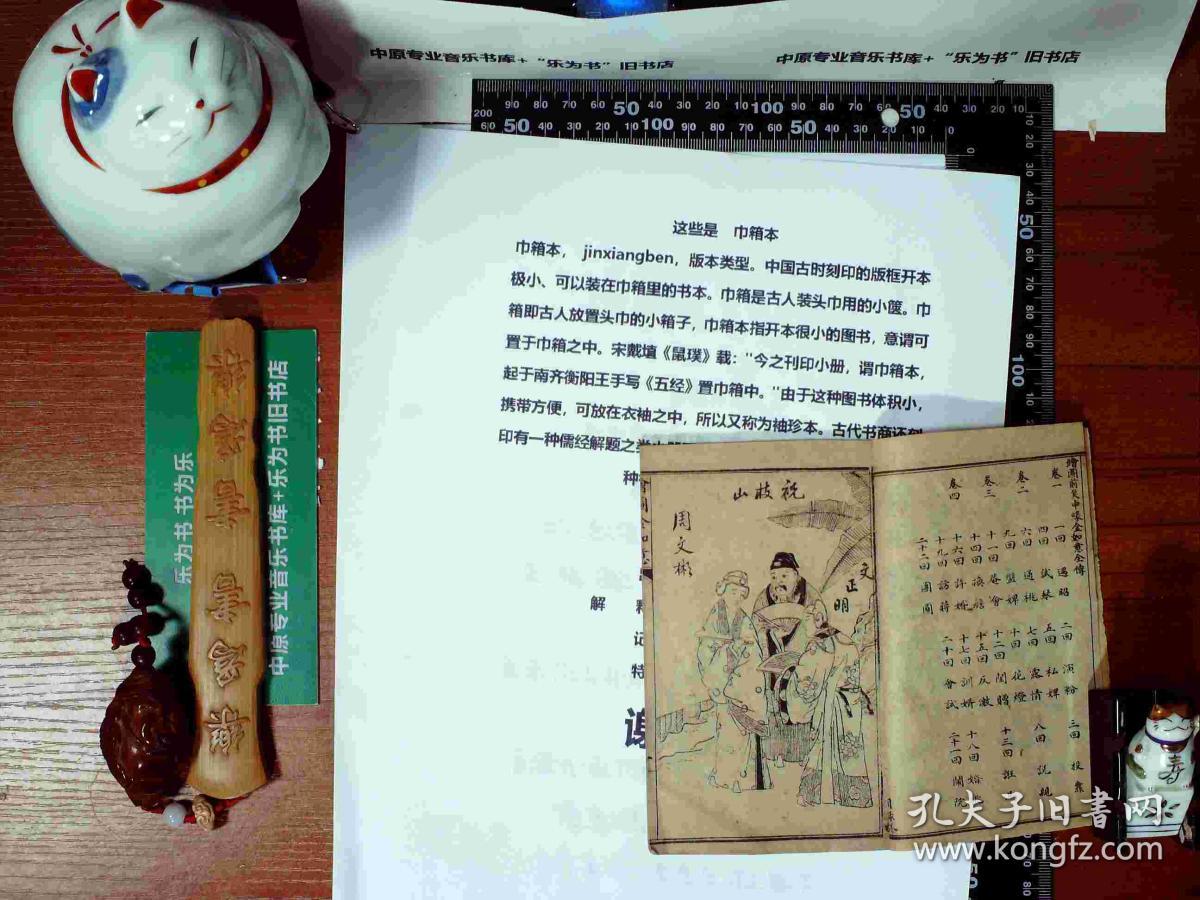 中原专业音乐书库+ “乐为书”旧书店
中原专业音乐书库+ “乐为书”旧书店
这些是 巾箱本
巾箱本， jinxiangben，版本类型。中国古时刻印的版框开本
极小、可以装在巾箱里的书本。巾箱是古人装头巾用的小箧。巾
箱即古人放置头巾的小箱子，巾箱本指开本很小的图书，意谓可
置于巾箱之中。宋戴埴《鼠璞》载："今之刊印小册，谓巾箱本，
起于南齐衡阳王手写《五经》置巾箱中。"由于这种图书体积小，
携带方便，可放在衣袖之中，所以又称为袖珍本。古代书商还刻
印有一种儒经解题之类
种
解
记
特
乐为书 书为乐
中原专业音乐书库+乐为书旧书店
祝枝山
周文彬
文正明
卷一
一回 遇昭 二回 演粉 三回 投靠
四回 試琴 五回 私婢
卷二
六回 通桃 七回 露情 八回 説親
九回 盤婢 十回 花燈
卷三
十一回 庵會 十二回 閨贈 十三回 誑
十五回 反激
卷四
十六回 許婚 十七回 訓婿 十八回
十九回 訪蔣 二十回 會試 二十一回 鬧院
二十二回 團圓
寿
孔夫子旧书网
www.kongfz.com